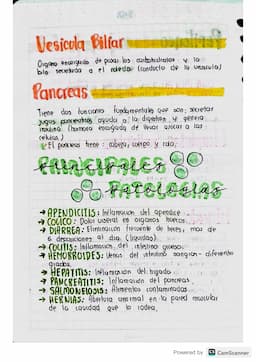 Vesícula Biliar
Organo encargado de pasar los carbohidratos y la
bilis secretada a el colédoco (conducto de la vesícula)
Pancreas
Tiene dos funciones fundamentales que son: secretar
jugos pancreaticos ayuda a la digestión y genera
insulina (hormona encargada de llevar azúcar a las
células)
El páncreas tiene: cabeza, cuerpo y cola.
PRINCIPALES
PATOLOGÍAS
→ APENDICITIS: Inflamación del apendice
→ CÓLICO: Dolor visceral en organos huecos
→ DIARREA: Eliminación frecuente de heces, más de
6 deposiciones al día. (liquidas)
→ COLITIS: Inflamación del intestino grueso
→ HEMORROIDES: Venas del intestino sangran - diferentes
grados
→ HEPATITIS: Inflamación del higado
→ PANCREATITIS: Inflamación del pancreas
→ SALMONELOSIS: Alimentos contaminados
→ HERNIAS: Abertura anormal en la pared muscular
de la cavidad que la rodea.
Powered by CS CamScanner